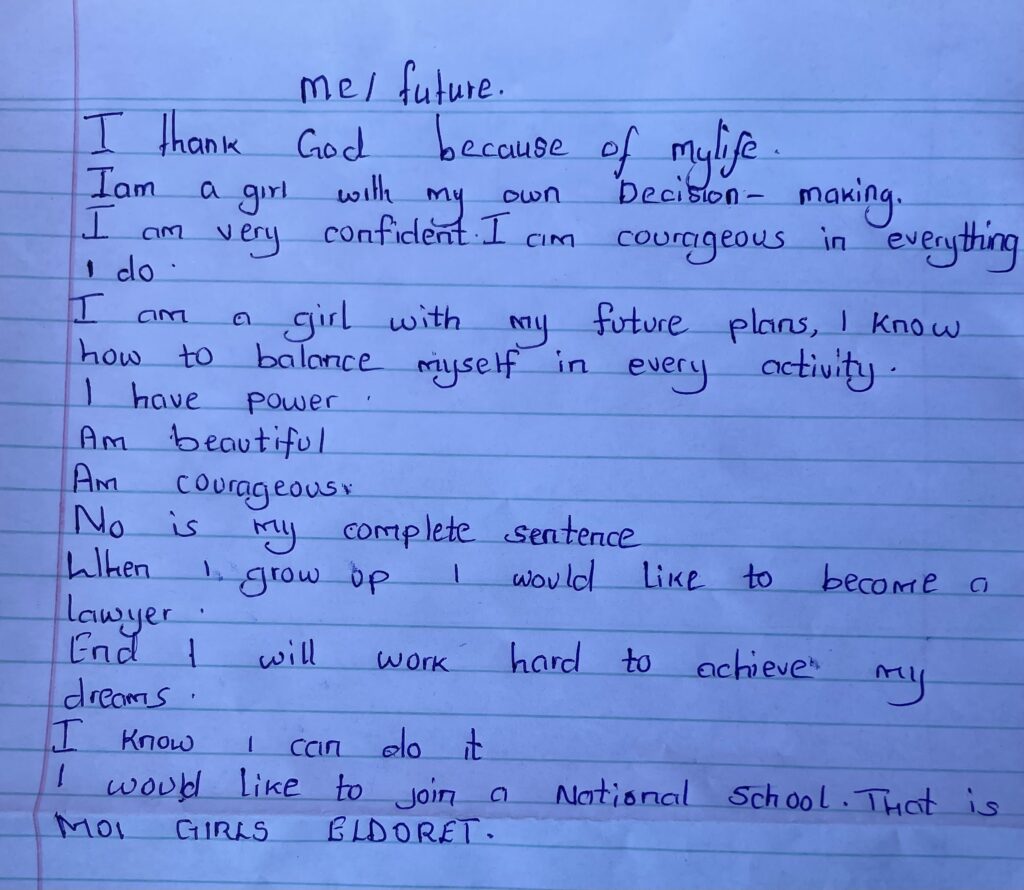 me/ future.
I thank God because of mylife.
Iam a girl with my own Decision- making.
I am very confident. I am courageous in everything
I do.
I am a girl with my future plans, I know
how to balance myself in every activity.
I have power.
Am beautiful
Am courageous.
No is my complete sentence
When I grow up I would like to become a
lawyer.
End I will work hard to achieve my
dreams.
I know I can do it
I would like to join a National School. That is
MOI GIRLS ELDORET.